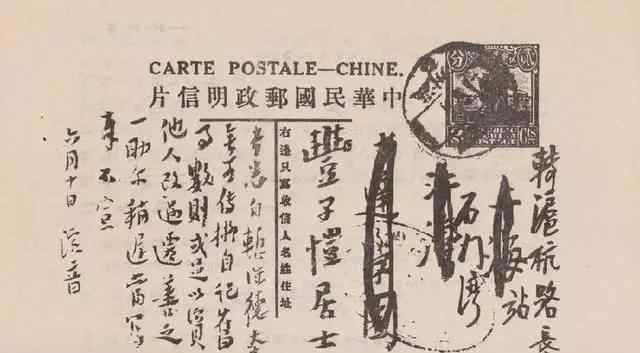 CARTE POSTALE—CHINE.
中華民國郵政明信片
貳分
轉滬杭路長
站
石門灣
豐子愷居士
右邊只寫收信人名姓住址
書悉自慚涼德本
傳擬自記舊
事數則或足以資
他人改過遷善之
一助尔稍遲當寫
奉不宣
六月十日 演音